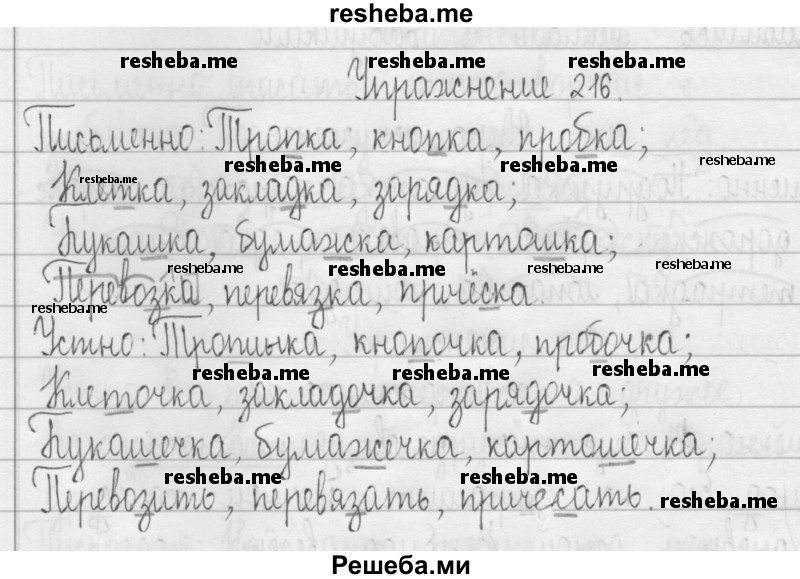 resheba.me
resheba.me resheba.me resheba.me
Упражнение 216.
Письменно: Тропка, кнопка, пробка;
resheba.me resheba.me resheba.me
resheba.me
Клетка, закладка, зарядка;
Букашка, бумажка, картошка;
resheba.me resheba.me resheba.me resheba.me
Перевозка, перевязка, причёска
resheba.me
Устно: Тропинка, кнопочка, пробочка;
resheba.me resheba.me resheba.me
Клеточка, закладочка, зарядочка,
Букашечка, бумажечка, картошечка;
resheba.me resheba.me
Перевозить, перевязать, причесать.
resheba.me
Решеба.ми